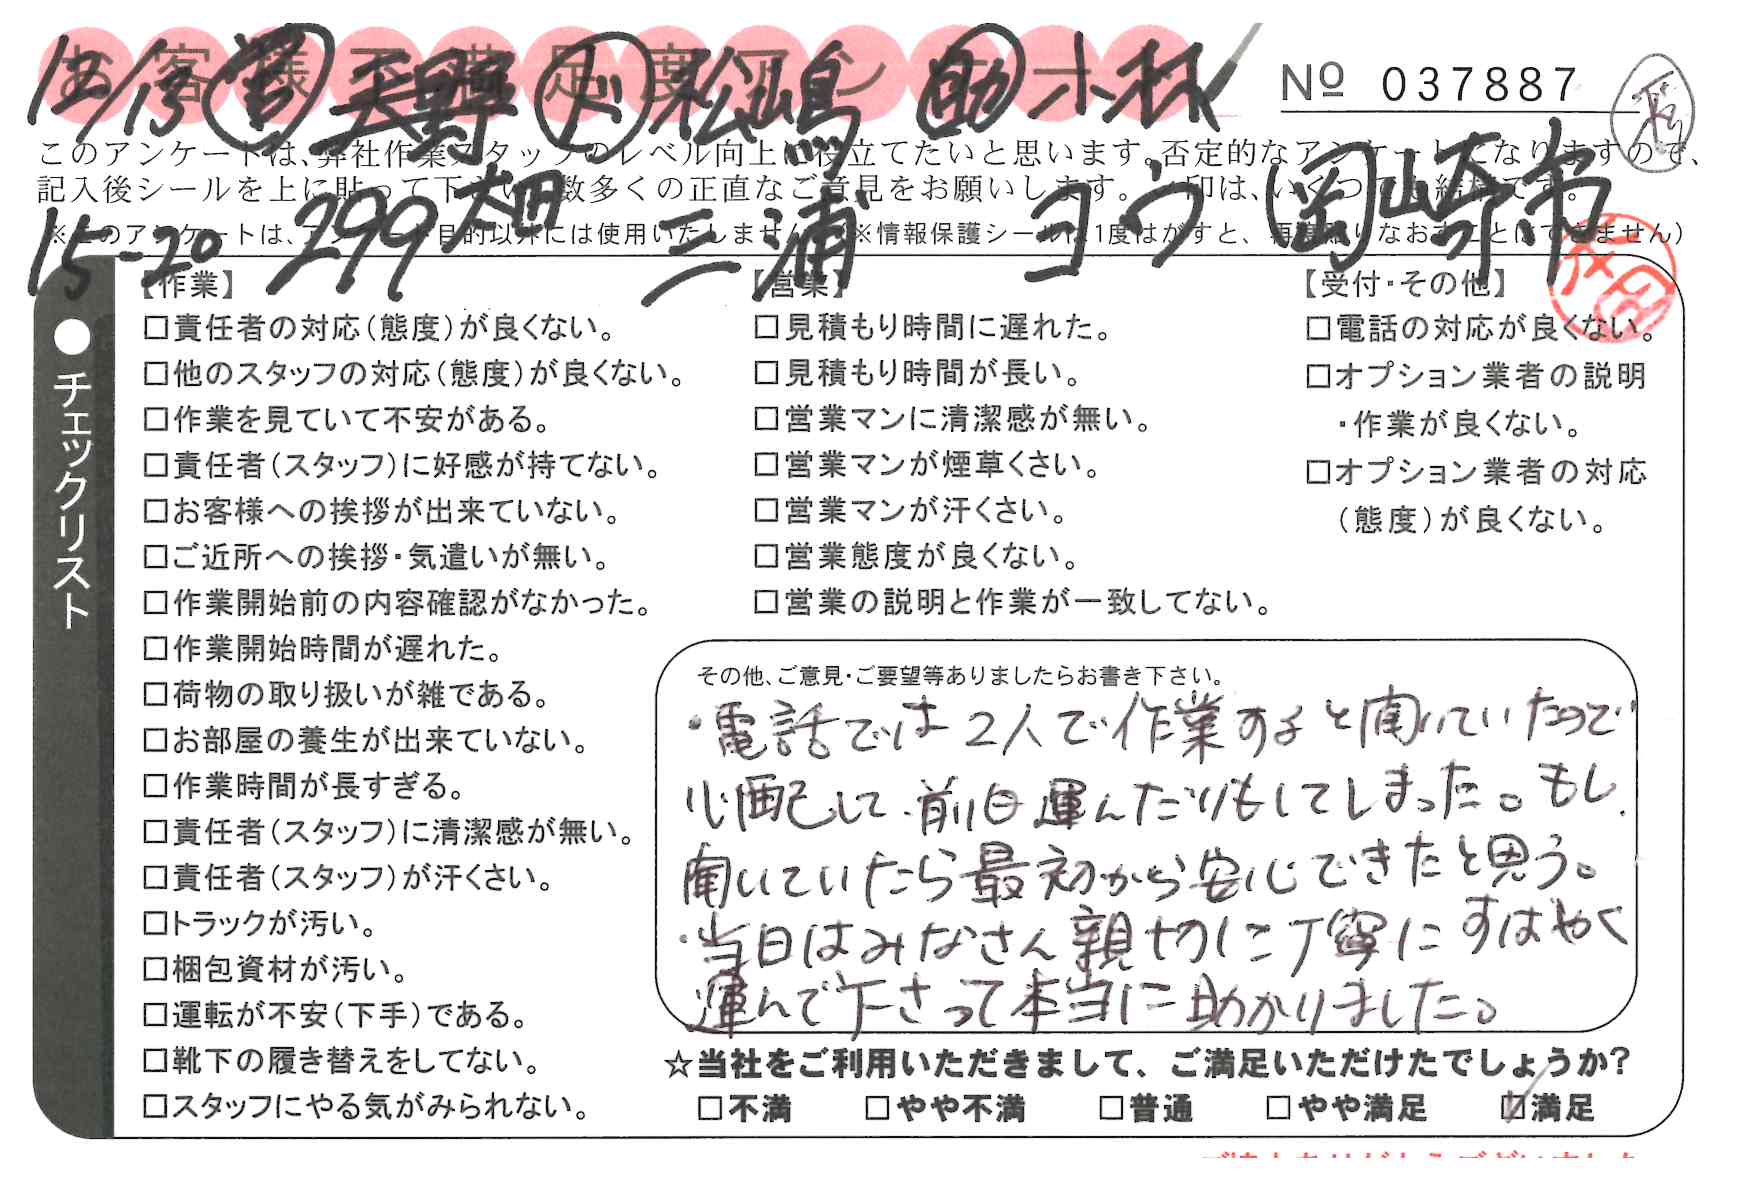 お客様満足度アンケート
12/13 営 天野 ド 松嶋 助 小林
No 037887
このアンケートは、弊社作業スタッフのレベル向上に役立てたいと思います。否定的なアンケートになりますので、
記入後シールを上に貼って下さい。数多くの正直なご意見をお願いします。 印は、いくつでも結構です。
15-20 299 太田 三浦 ヨウ 岡崎市
※このアンケートは、アンケート目的以外には使用いたしません (※情報保護シールは1度はがすと、再度貼りなおすことはできません)
●チェックリスト
【作業】
□責任者の対応(態度)が良くない。
□他のスタッフの対応(態度)が良くない。
□作業を見ていて不安がある。
□責任者(スタッフ)に好感が持てない。
□お客様への挨拶が出来ていない。
□ご近所への挨拶・気遣いが無い。
□作業開始前の内容確認がなかった。
□作業開始時間が遅れた。
□荷物の取り扱いが雑である。
□お部屋の養生が出来ていない。
□作業時間が長すぎる。
□責任者(スタッフ)に清潔感が無い。
□責任者(スタッフ)が汗くさい。
□トラックが汚い。
□梱包資材が汚い。
□運転が不安(下手)である。
□靴下の履き替えをしてない。
□スタッフにやる気がみられない。
【営業】
□見積もり時間に遅れた。
□見積もり時間が長い。
□営業マンに清潔感が無い。
□営業マンが煙草くさい。
□営業マンが汗くさい。
□営業態度が良くない。
□営業の説明と作業が一致してない。
【受付・その他】
□電話の対応が良くない。
□オプション業者の説明
・作業が良くない。
□オプション業者の対応
(態度)が良くない。
その他、ご意見・ご要望等ありましたらお書き下さい。
・電話では2人で作業すると聞いていたので
心配して前日運んだりもしてしまった。もし
聞いていたら最初から安心できたと思う。
・当日はみなさん親切に丁寧にすばやく
運んで下さって本当に助かりました。
☆当社をご利用いただきまして、ご満足いただけたでしょうか?
□不満 □やや不満 □普通 □やや満足 ☑満足